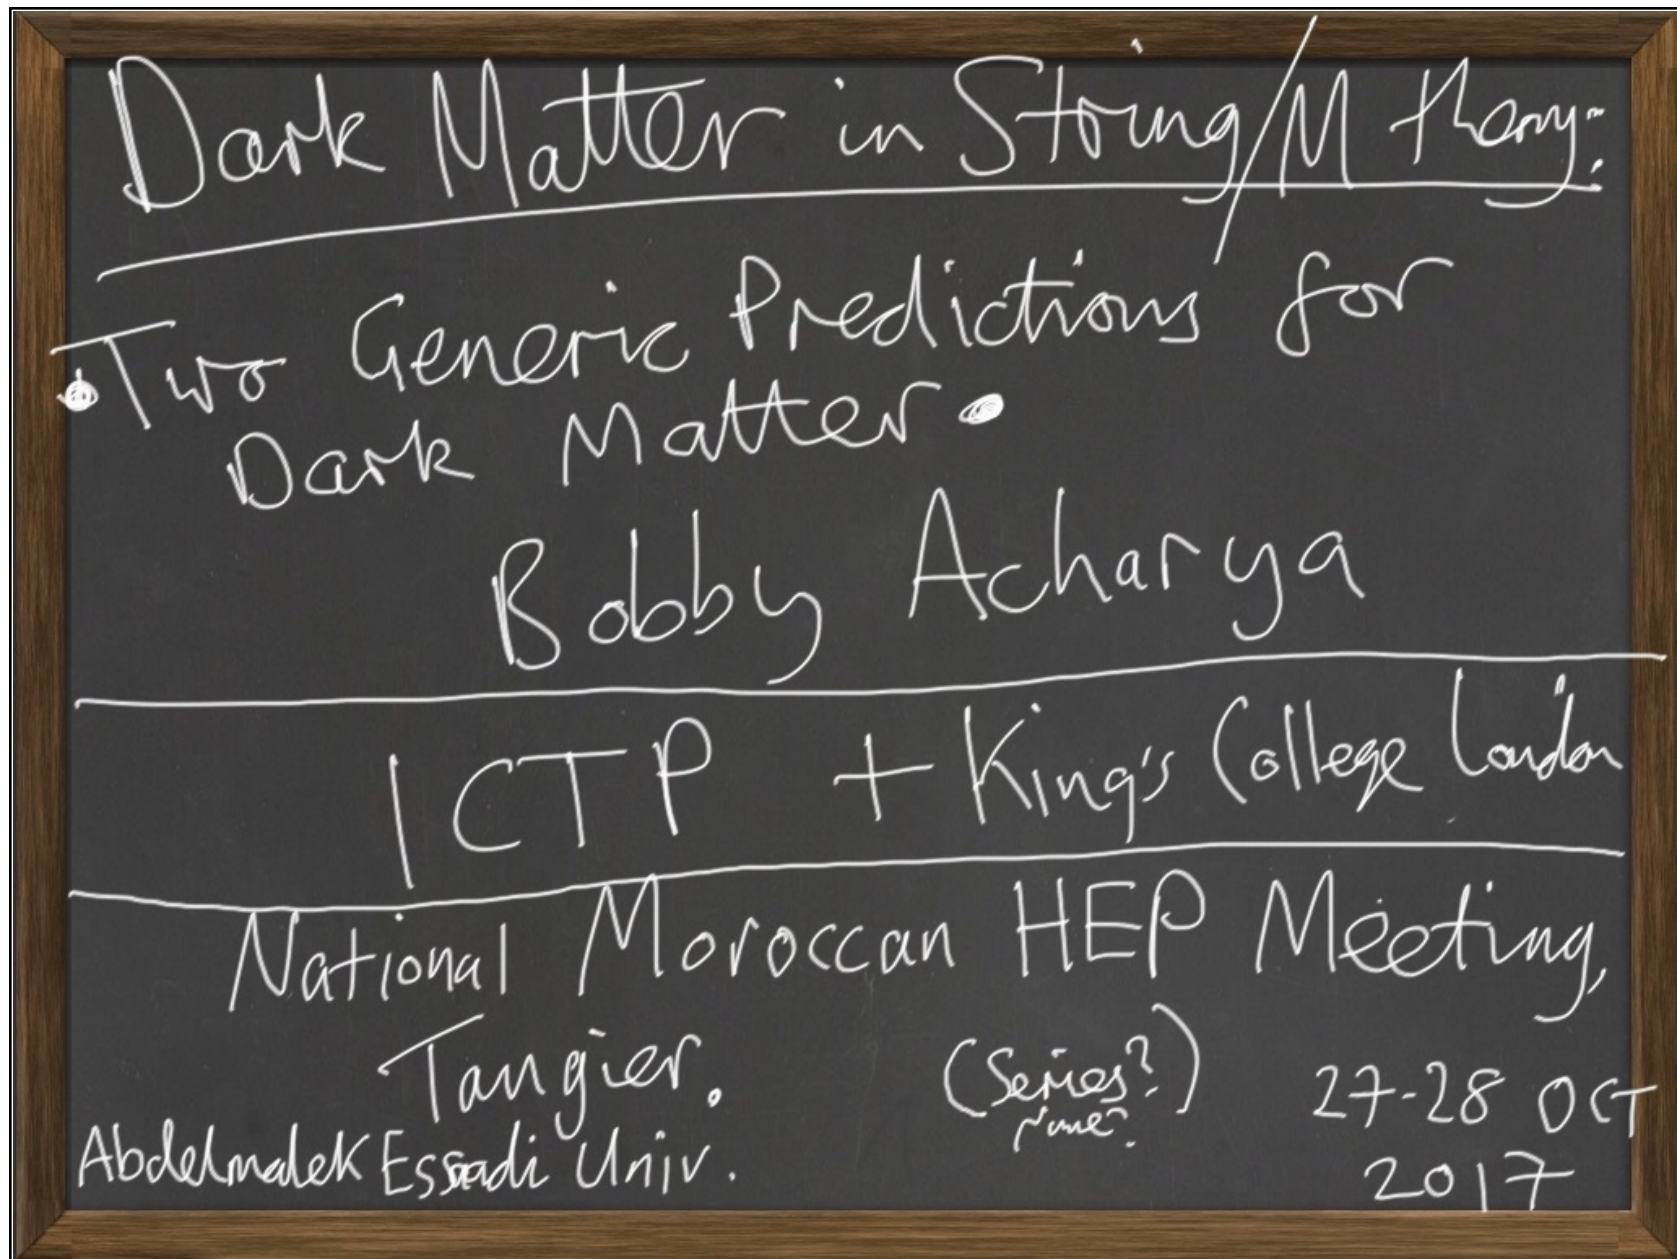 Dark Matter in String/M theory:
• Two Generic Predictions for
Dark Matter •
Bobby Acharya
ICTP + King's College London
National Moroccan HEP Meeting,
Tangier. (Series? 27-28 OCT
name?)
Abdelmalek Essadi Univ. 2017